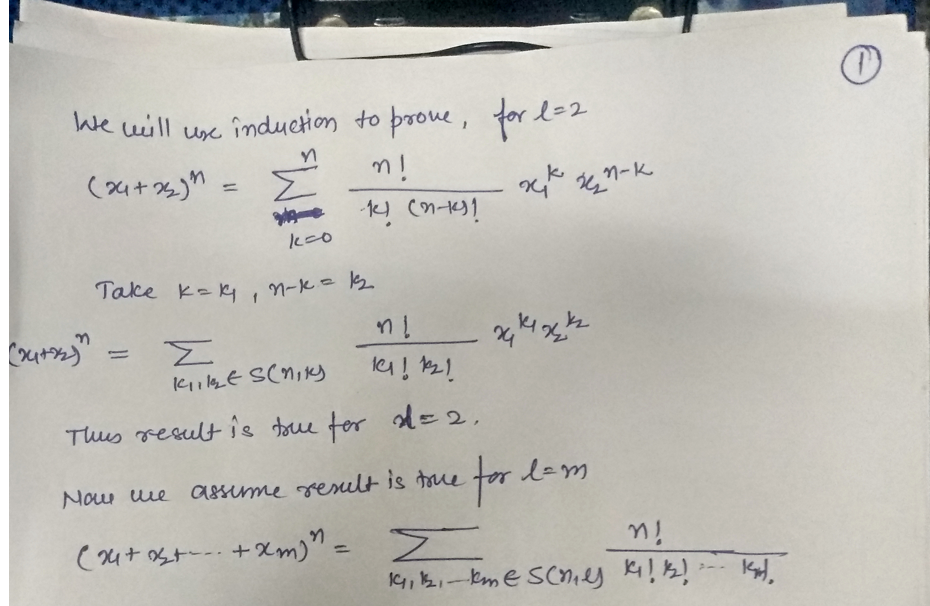 ①
We will use induction to prove, for l=2
(x₁+x₂)ⁿ = Σ_{k=0}^{n} n!/(k! (n-k)!) x₁^k x₂^{n-k}
Take k=k₁, n-k=k₂
(x₁+x₂)ⁿ = Σ_{k₁,k₂ ∈ S(n,k)} n!/(k₁! k₂!) x₁^{k₁} x₂^{k₂}
Thus result is true for l=2.
Now we assume result is true for l=m
(x₁+x₂+---+xₘ)ⁿ = Σ_{k₁,k₂,--kₘ ∈ S(n,l)} n!/(k₁! k₂! --- kₘ!)